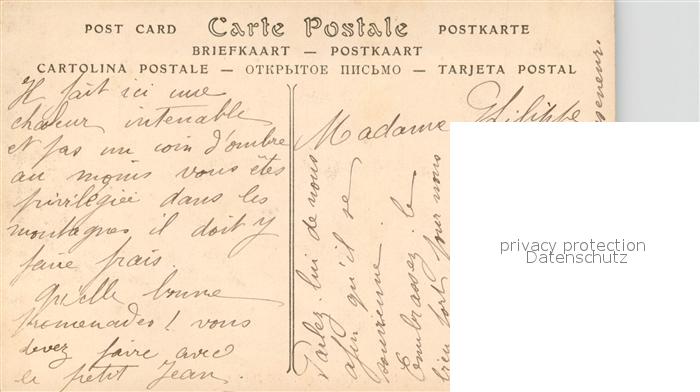 POST CARD Carte Postale POSTKARTE
BRIEFKAART — POSTKAART
CARTOLINA POSTALE — ОТКРЫТОЕ ПИСЬМО — TARJETA POSTAL
Il fait ici une
chaleur intenable
et pas un coin d'ombre
au moins vous êtes
privilégiée dans les
montagnes il doit y
faire frais.
Qu'elle bonne
promenades! vous
devez faire avec
le petit Jean.
Madame Philippe
Parlez-lui de nous
afin qu'il se
souvienne.
Embrassez le
bien fort pour nous
privacy protection
Datenschutz